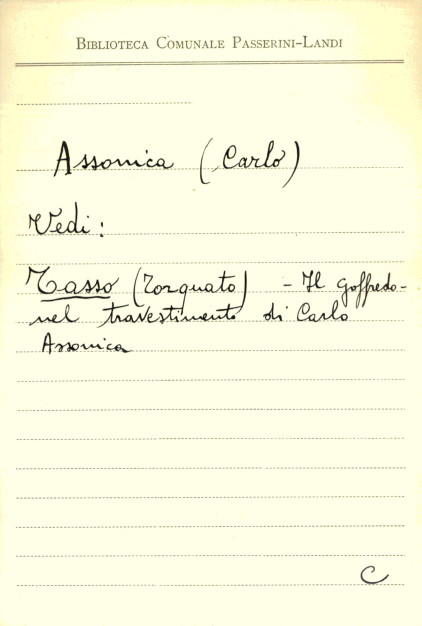 BIBLIOTECA COMUNALE PASSERINI-LANDI
Assonica (Carlo)
Vedi:
Tasso (Torquato) - Il Goffredo -
nel travestimento di Carlo
Assonica
C